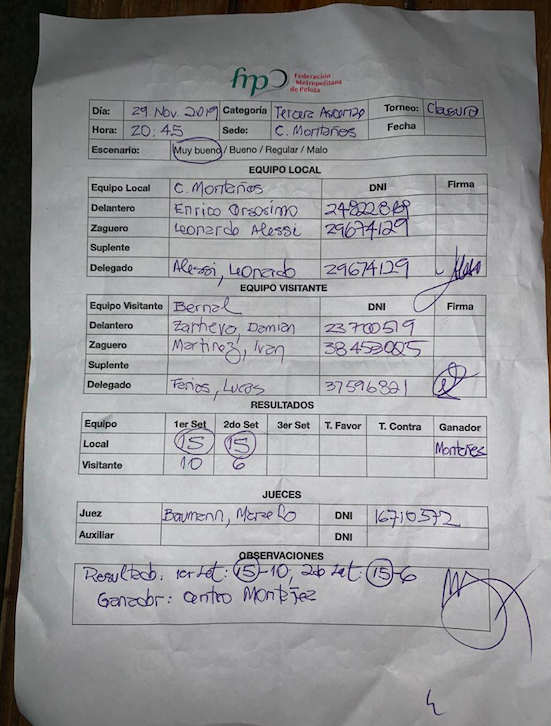 fmp Federación
Metropolitana
de Pelota
Día: 29 Nov. 2019 Categoría Tercera Ascenso Torneo: Clausura
Hora: 20:45 Sede: C. Montañes Fecha
Escenario: Muy bueno / Bueno / Regular / Malo
EQUIPO LOCAL
Equipo Local C. Montañes DNI Firma
Delantero Enrico
Zaguero Leonardo Alessi 29674129
Suplente
Delegado Alessi, Leonardo 29674129
EQUIPO VISITANTE
Equipo Visitante Bernal DNI Firma
Delantero Damian 23700519
Zaguero Martinez, Ivan
Suplente
Delegado Farios, Lucas 37596821
RESULTADOS
Equipo 1er Set 2do Set 3er Set T. Favor T. Contra Ganador
Local 15 15 Montañes
Visitante 10 6
JUECES
Juez Baumann, Marcelo DNI 16710372
Auxiliar DNI
OBSERVACIONES
Resultado: 1er set: 15-10, 2do set: 15-6
Ganador: Centro Montañez